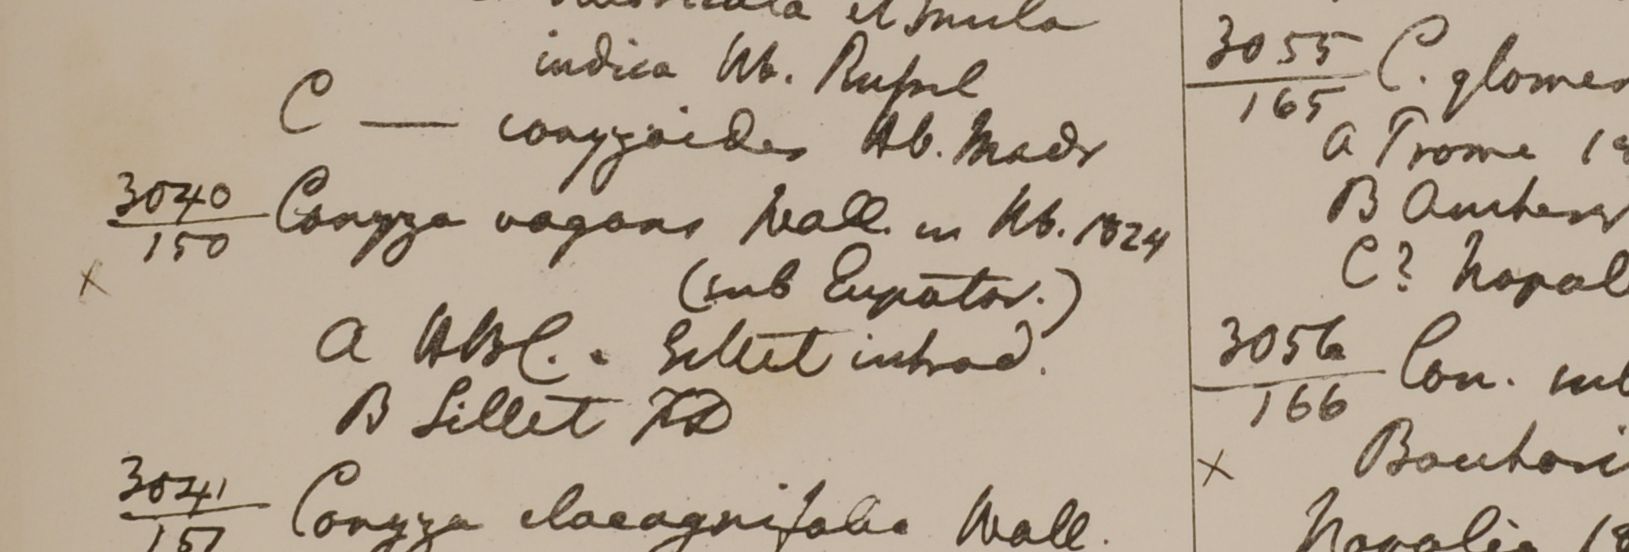 indica Hb. Rupel
C — conyzoides Hb. Madr
3040
150
Conyza vagans Wall. in Hb. 1824
x
(sub Eupator.)
A HBC. . Sillet introd.
B Sillet FD
3041
151
Conyza elaeagnifolia Wall.
3055
165
C. glomer
A Prome 18
B Amhers
C? Napal
3056
166
Con.
x
Napalia 18